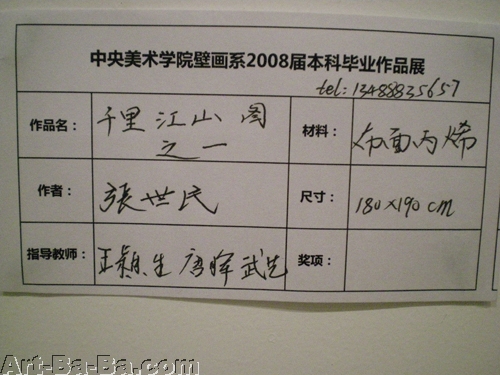 中央美术学院壁画系2008届本科毕业作品展
tel:13488835657
作品名: 千里江山图 材料: 布面丙烯
之一
作者: 張世民 尺寸: 180×190cm
指导教师: 王颖生 唐晖 武艺 奖项:
Art-Ba-Ba.com